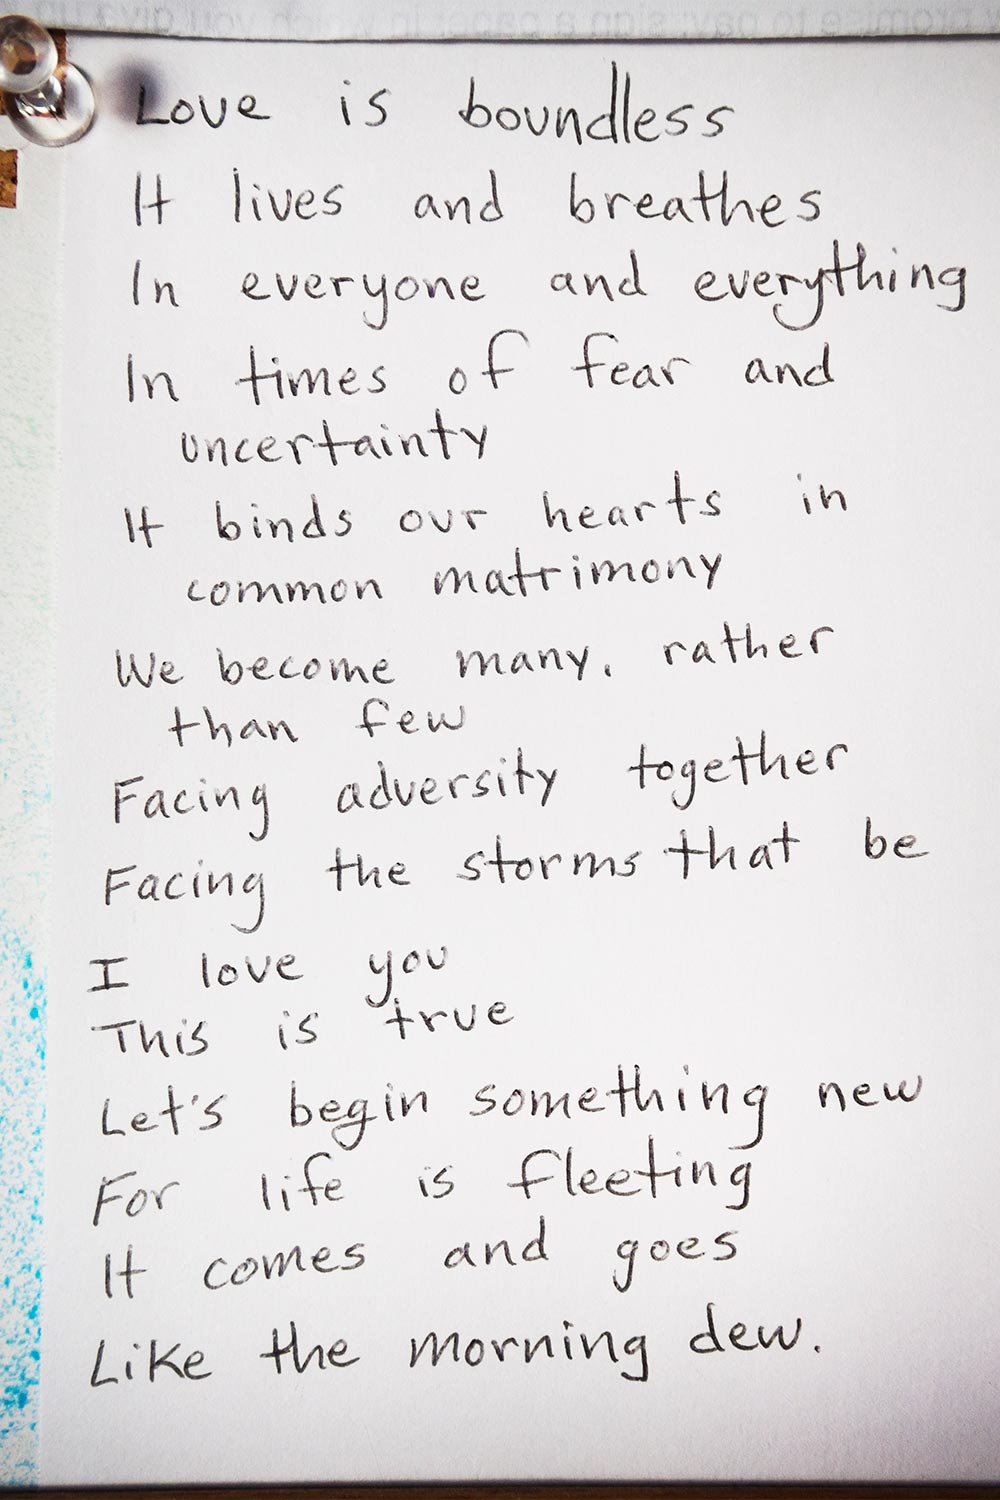 Love is boundless
It lives and breathes
In everyone and everything
In times of fear and
uncertainty
It binds our hearts in
common matrimony
We become many, rather
than few
Facing adversity together
Facing the storms that be
I love you
This is true
Let's begin something new
For life is fleeting
It comes and goes
Like the morning dew.